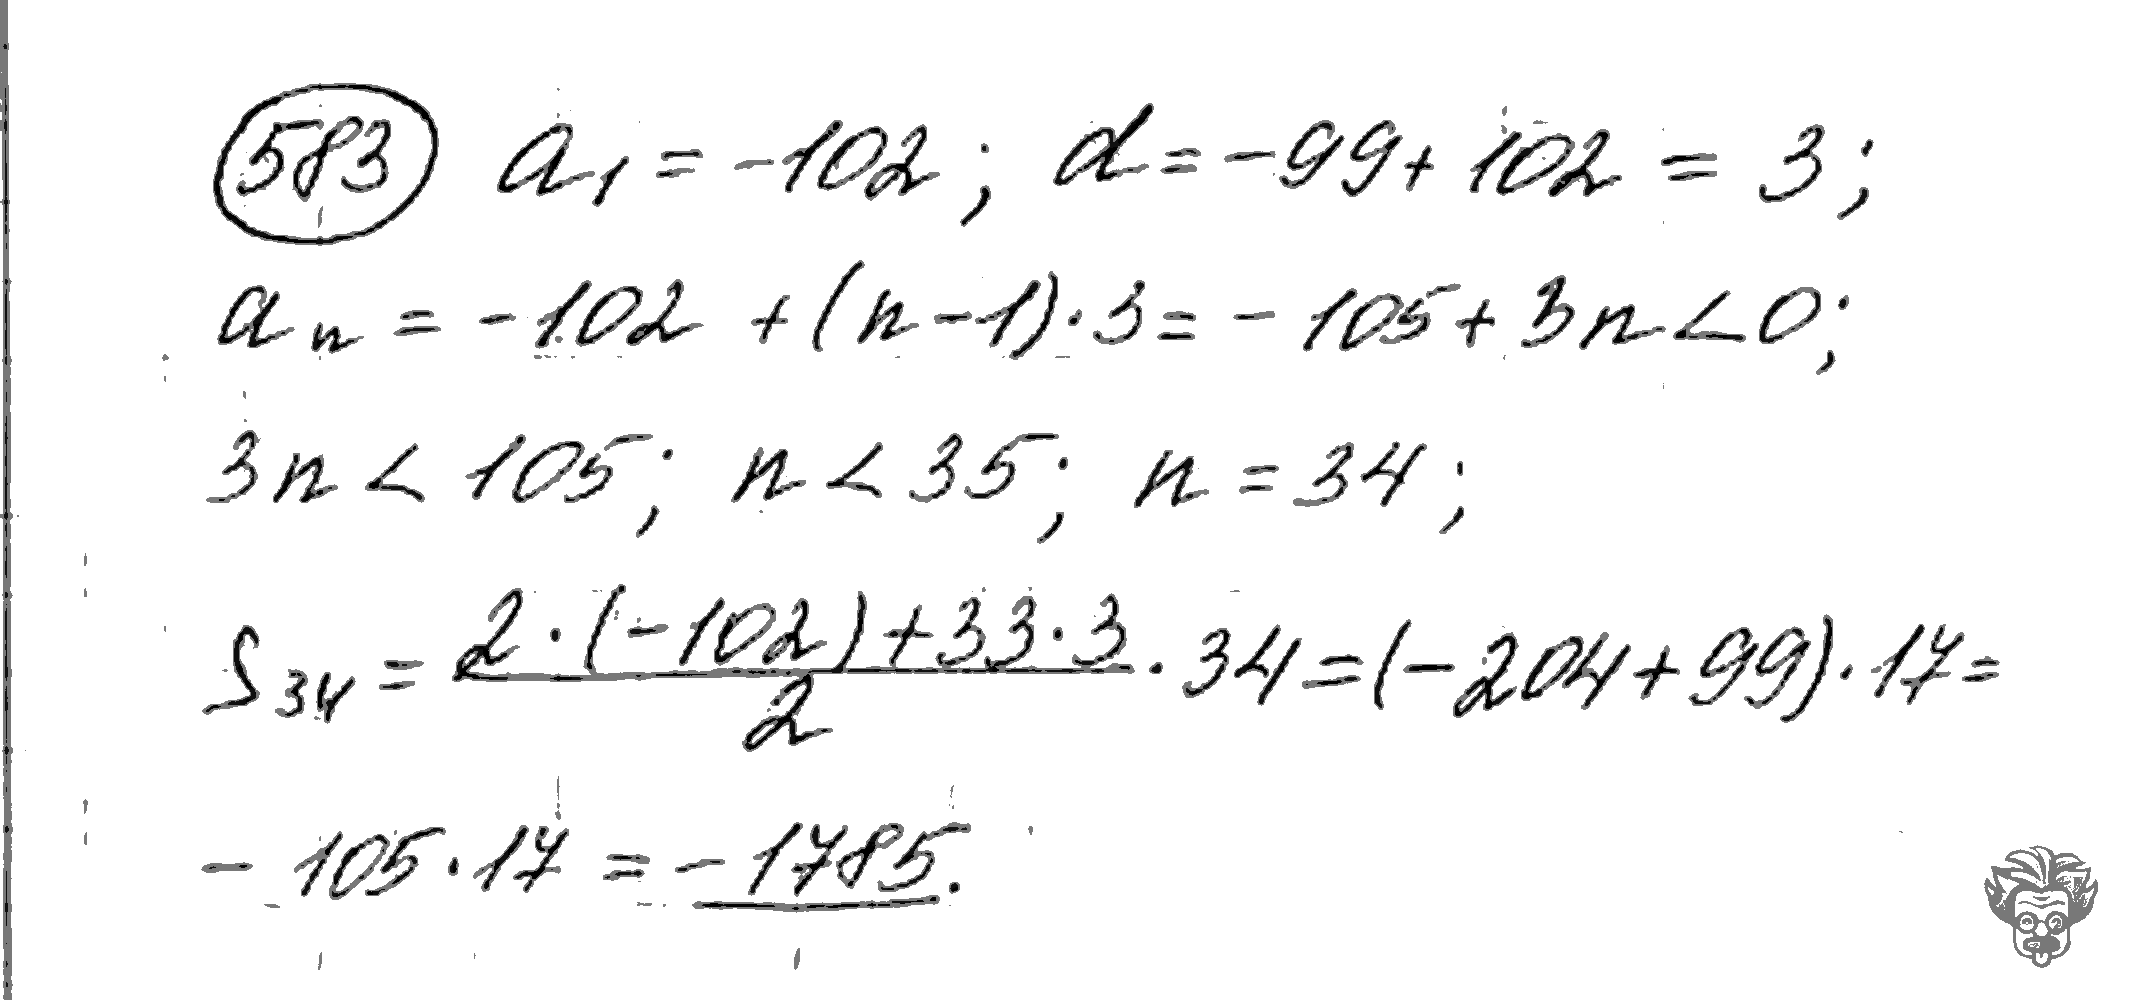 583 a₁ = -102; d = -99 + 102 = 3;
aₙ = -102 + (n-1)·3 = -105 + 3n < 0;
3n < 105; n < 35; n = 34;
S₃₄ = (2·(-102)+33·3)/2 · 34 = (-204+99)·17 =
-105·17 = -1785.